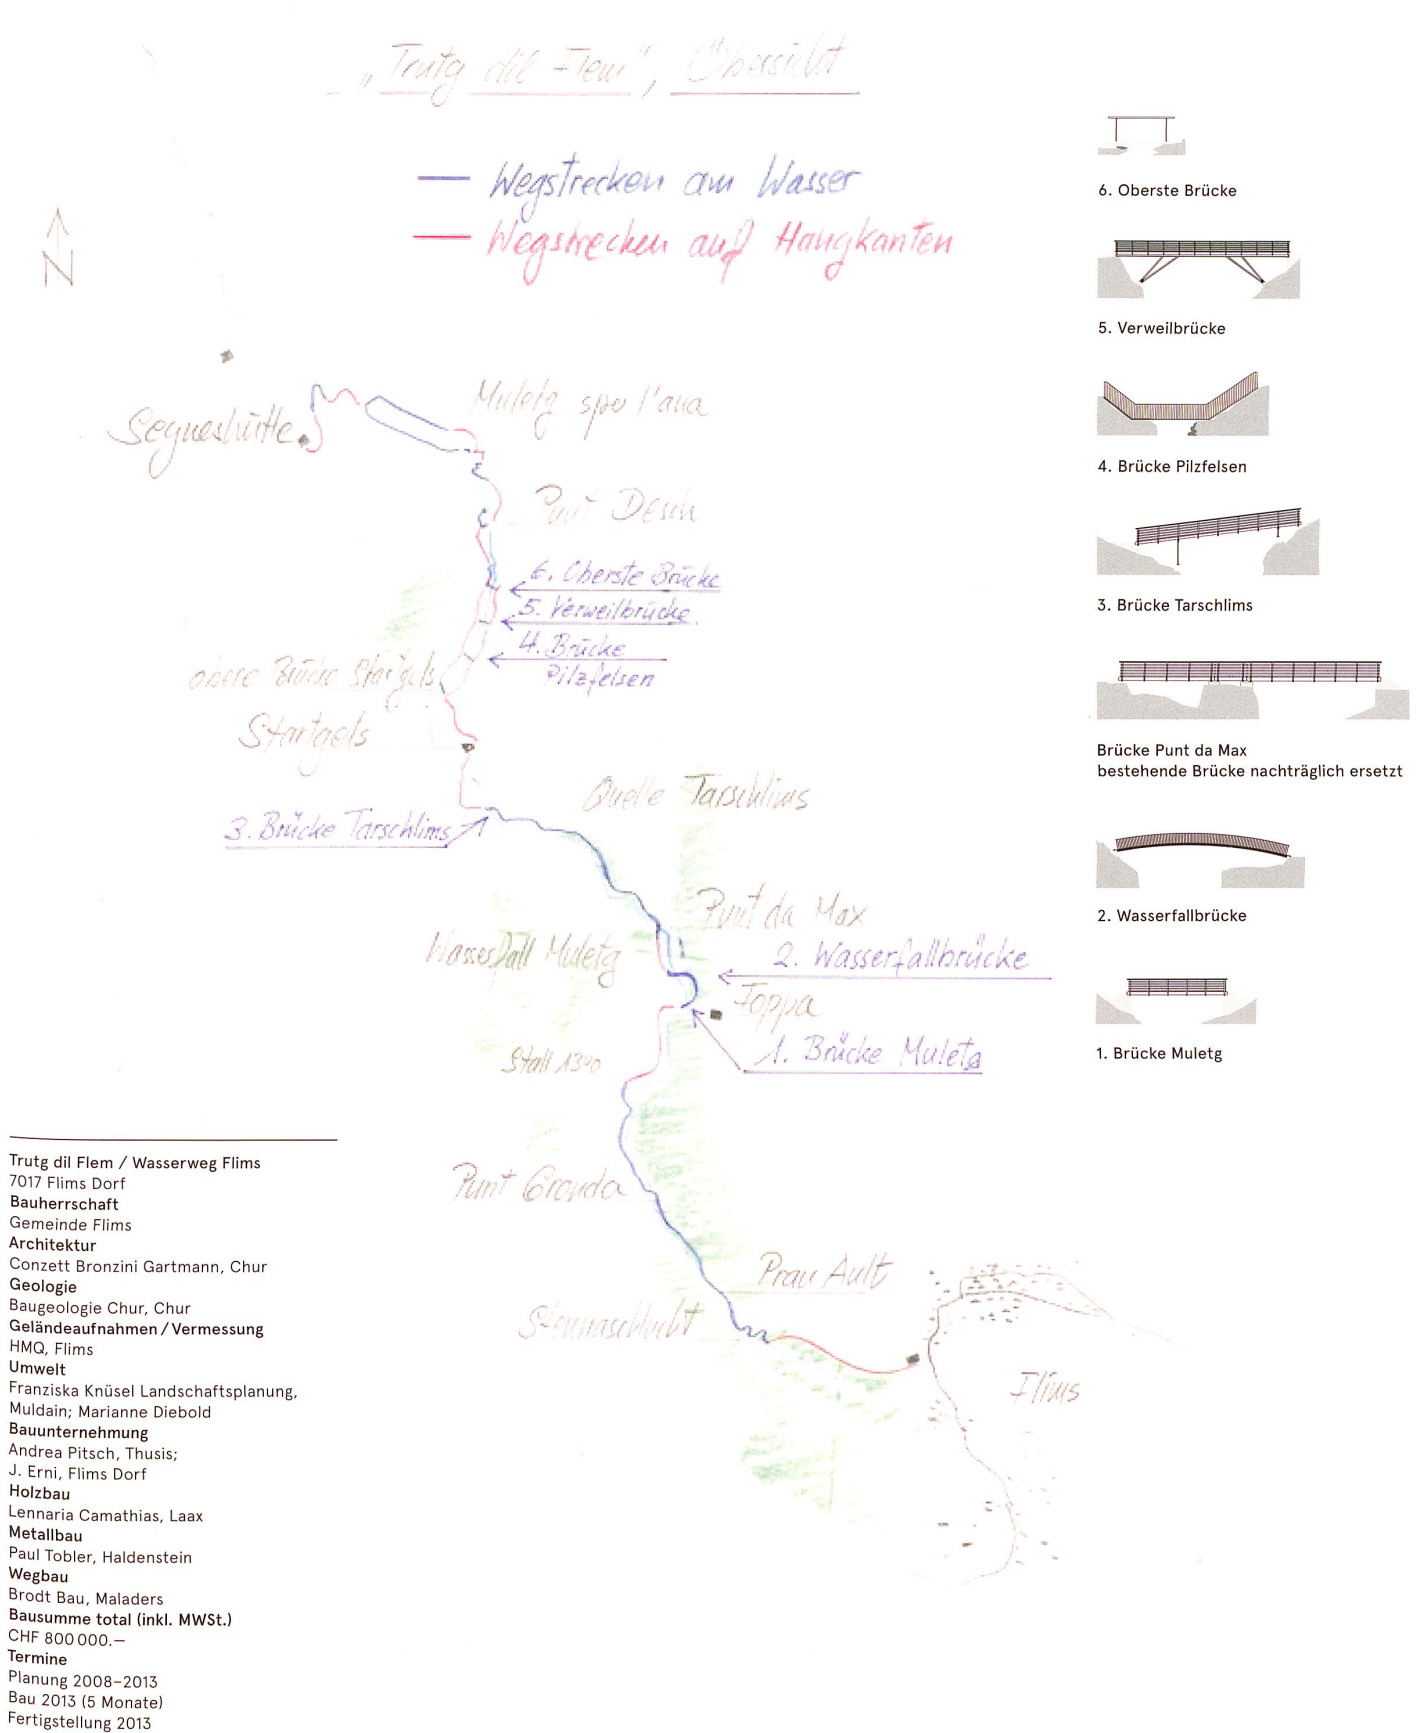 „Trutg dil Flem", Übersicht
Wegstrecken am Wasser
Wegstrecken auf Hangkanten
N
Segneshütte
Muletg sper l'aua
Punt Desch
6. Oberste Brücke
5. Verweilbrücke
4. Brücke
Pilzfelsen
obere Brücke Startgels
Startgels
Quelle Tarschlims
3. Brücke Tarschlims
Punt da Max
Wasserfall Muletg
2. Wasserfallbrücke
Foppa
1. Brücke Muletg
Stall
Punt Gronda
Prau Ault
Stennaschlucht
Flims
6. Oberste Brücke
5. Verweilbrücke
4. Brücke Pilzfelsen
3. Brücke Tarschlims
Brücke Punt da Max
bestehende Brücke nachträglich ersetzt
2. Wasserfallbrücke
1. Brücke Muletg
Trutg dil Flem / Wasserweg Flims
7017 Flims Dorf
Bauherrschaft
Gemeinde Flims
Architektur
Conzett Bronzini Gartmann, Chur
Geologie
Baugeologie Chur, Chur
Geländeaufnahmen / Vermessung
HMQ, Flims
Umwelt
Franziska Knüsel Landschaftsplanung,
Muldain; Marianne Diebold
Bauunternehmung
Andrea Pitsch, Thusis;
J. Erni, Flims Dorf
Holzbau
Lennaria Camathias, Laax
Metallbau
Paul Tobler, Haldenstein
Wegbau
Brodt Bau, Maladers
Bausumme total (inkl. MWSt.)
CHF 800 000.–
Termine
Planung 2008–2013
Bau 2013 (5 Monate)
Fertigstellung 2013